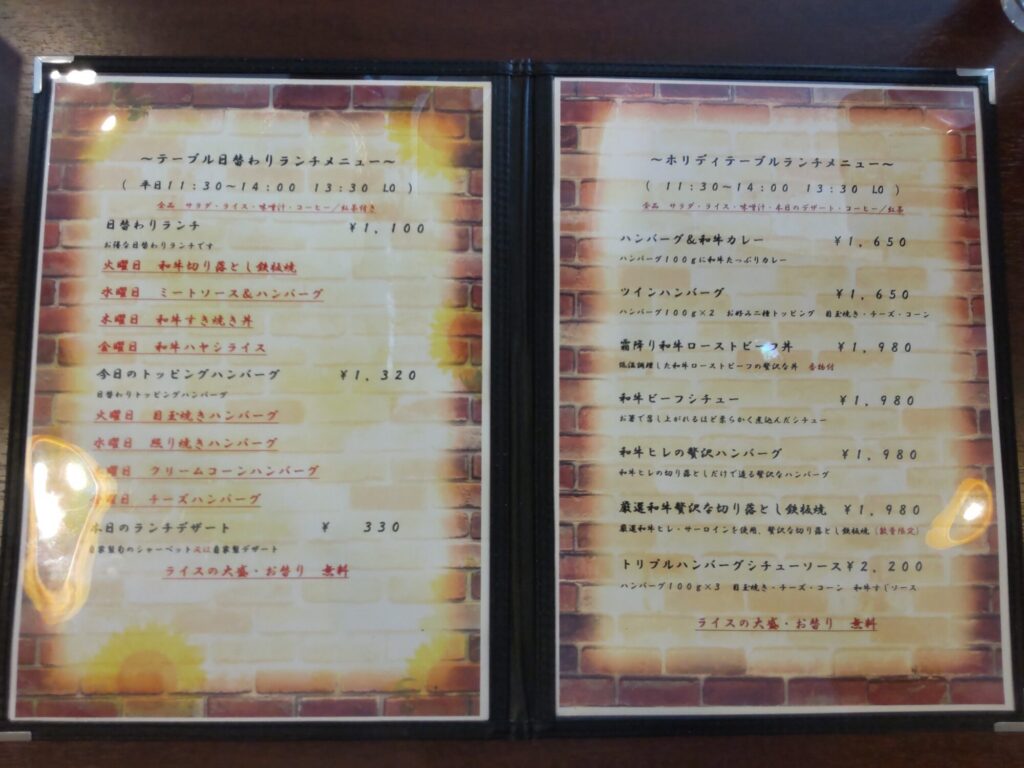 ～テーブル日替わりランチメニュー～
( 平日11:30～14:00 13:30 LO )
全品 サラダ・ライス・味噌汁・コーヒー/紅茶付き
日替わりランチ ￥1,100
お得な日替わりランチです
火曜日 和牛切り落とし鉄板焼
水曜日 ミートソース＆ハンバーグ
木曜日 和牛すき焼き丼
金曜日 和牛ハヤシライス
今日のトッピングハンバーグ ￥1,320
日替わりトッピングハンバーグ
火曜日 目玉焼きハンバーグ
水曜日 照り焼きハンバーグ
曜日 クリームコーンハンバーグ
曜日 チーズハンバーグ
本日のランチデザート ￥ 330
自家製旬のシャーベット又は自家製デザート
ライスの大盛・お替り 無料
～ホリデイテーブルランチメニュー～
( 11:30～14:00 13:30 LO )
全品 サラダ・ライス・味噌汁・本日のデザート・コーヒー/紅茶
ハンバーグ＆和牛カレー ￥1,650
ハンバーグ100gに和牛たっぷりカレー
ツインハンバーグ ￥1,650
ハンバーグ100g×2 お好み二種トッピング 目玉焼き・チーズ・コーン
霜降り和牛ローストビーフ丼 ￥1,980
低温調理した和牛ローストビーフの贅沢な丼 香物付
和牛ビーフシチュー ￥1,980
お箸で召し上がれるほど柔らかく煮込んだシチュー
和牛ヒレの贅沢ハンバーグ ￥1,980
和牛ヒレの切り落としだけで造る贅沢なハンバーグ
厳選和牛贅沢な切り落とし鉄板焼 ￥1,980
厳選和牛ヒレ・サーロインを使用、贅沢な切り落とし鉄板焼（数量限定）
トリプルハンバーグシチューソース￥2,200
ハンバーグ100g×3 目玉焼き・チーズ・コーン 和牛すじソース
ライスの大盛・お替り 無料